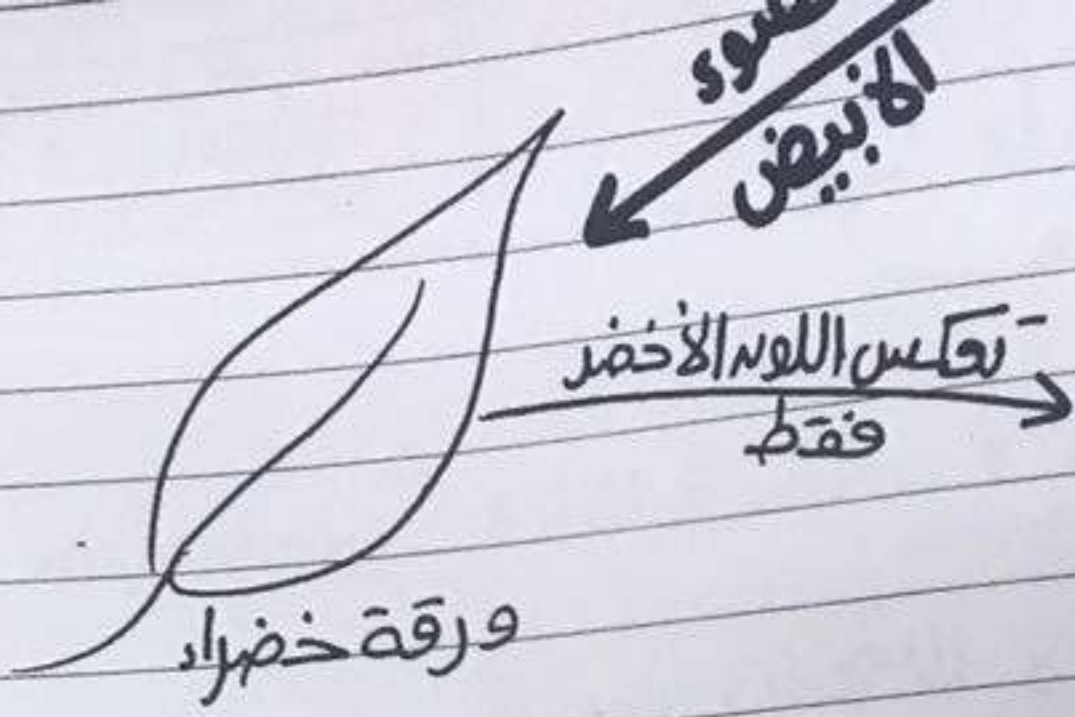 الأبيض
تعكس اللون الأخضر
فقط
ورقة خضراء